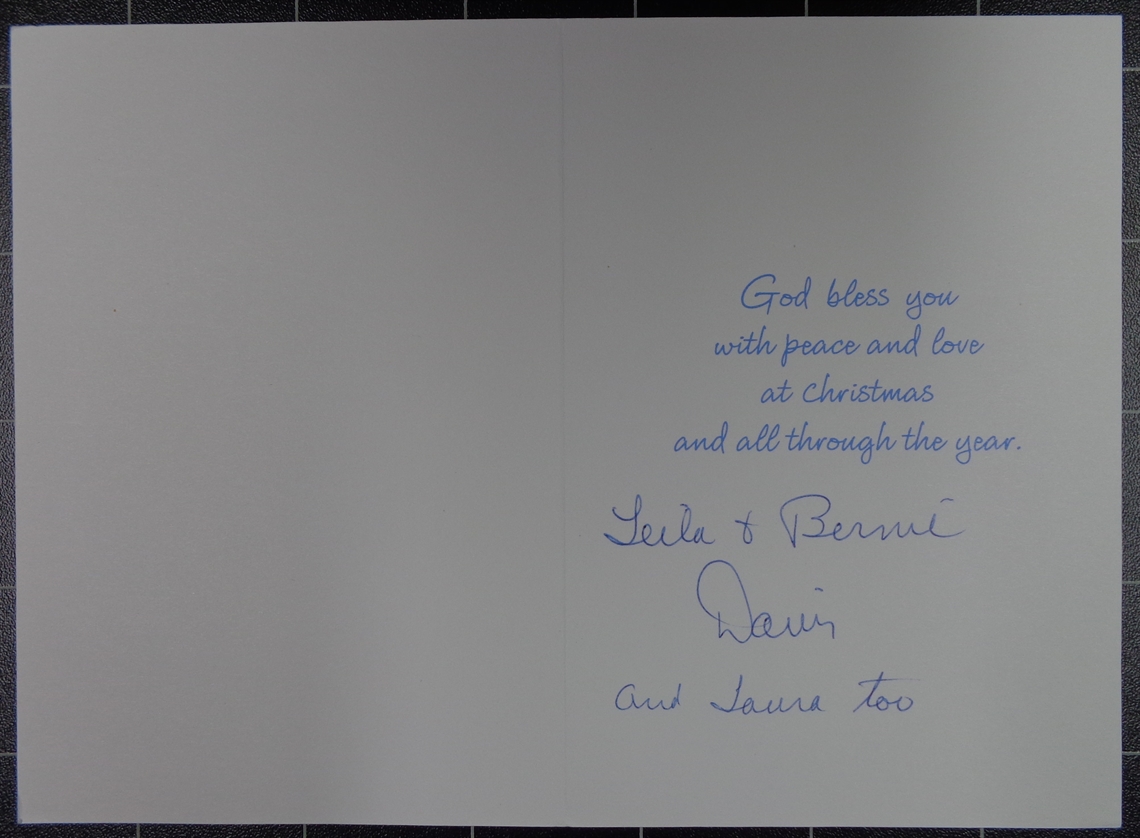 God bless you
with peace and love
at Christmas
and all through the year.
Leila & Bernie
Davis
and Laura too